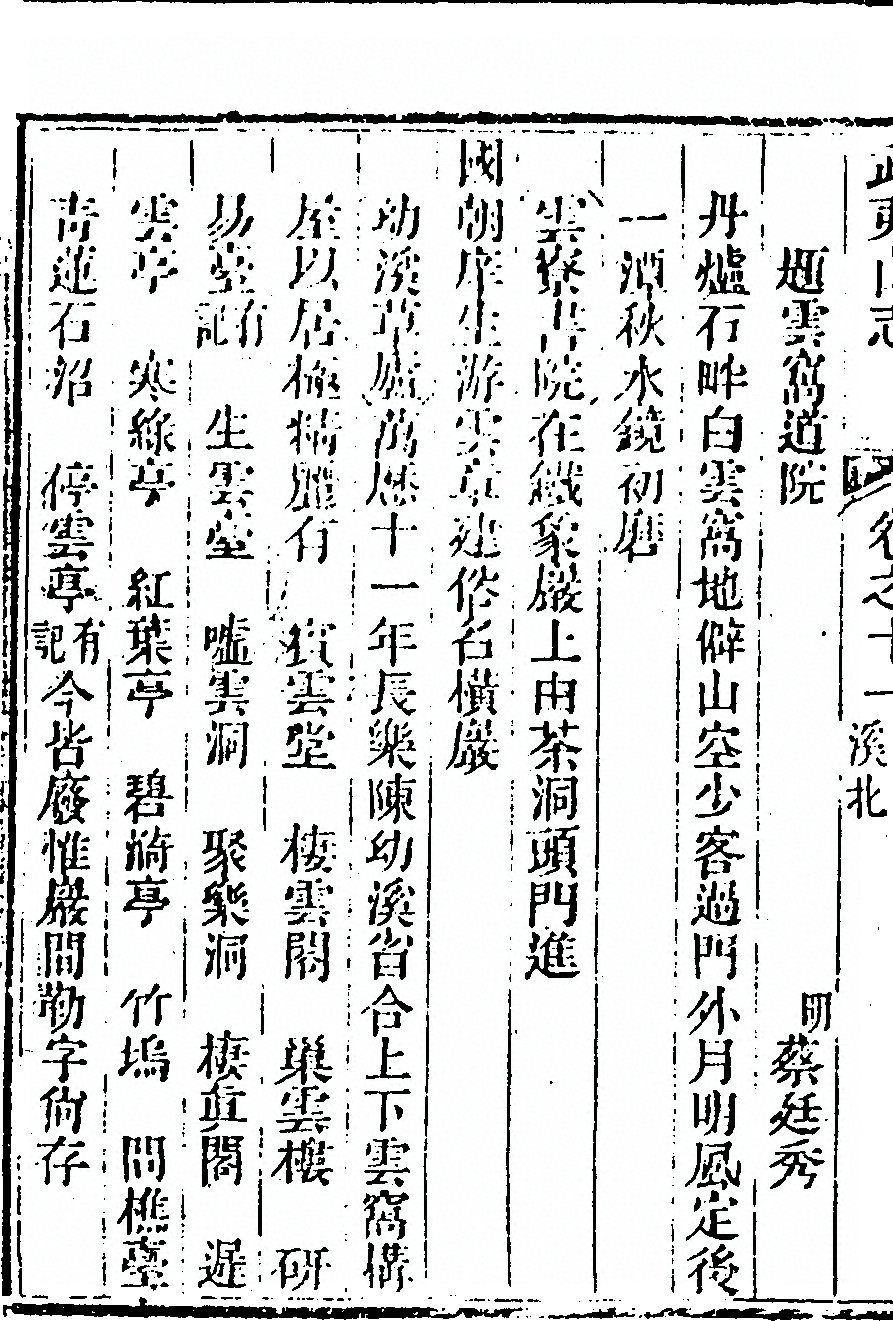 武夷山志 卷之十一 溪北
題雲窩道院 明 蔡廷秀
丹爐石畔白雲窩地僻山空少客過門外月明風定後
一潭秋水鏡初磨
雲寮書院在鐵象巖上由茶洞頭門進
國朝庠生游雲章建俗名橫巖
幼溪草廬萬厯十一年長樂陳幼溪省合上下雲窩構
屋以居極精麗有 賓雲堂 棲雲閣 巢雲樓 研
易臺有記 生雲臺 嘘雲洞 聚樂洞 棲眞閣 遲
雲亭 寒綠亭 紅葉亭 碧漪亭 竹塢 問樵臺
青蓮石沼 停雲亭有記今皆廢惟巖間勒字尚存